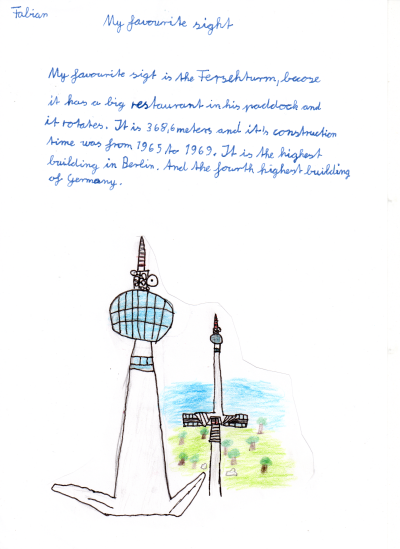 Fabian
My favourite sight
My favourite sigt is the Fersehturm, becose
it has a big restaurant in his paddock and
it rotates. It is 368,6 meters and it's construction
time was from 1965 to 1969. It is the highest
building in Berlin. And the fourth highest building
of Germany.